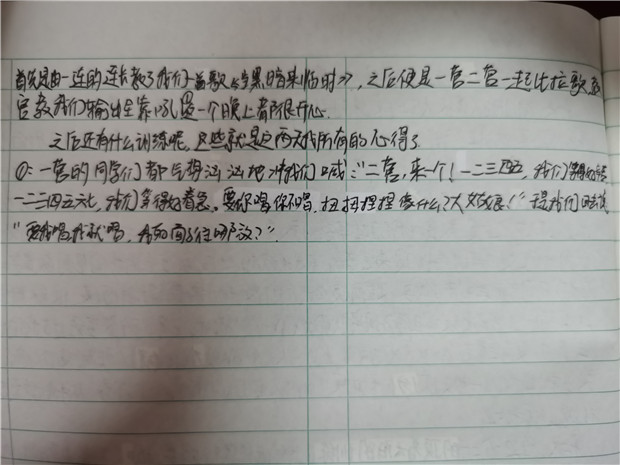 首先是由一连的连长教了我们一首歌《当黑暗来临时》，之后便是一营二营一起比拉歌，
官教我们输出全靠吼①一个晚上都很开心.
之后还有什么训练呢，这些就是这两天我所有的心得了
①：一营的同学们都气势汹汹地冲我们喊："二营，来一个！一二三四五，我们等得好辛苦
一二三四五六七，我们等得好着急。要你唱你不唱，扭扭捏捏像什么？大姑娘！"
"要我唱我就唱，我的面子往哪放？".